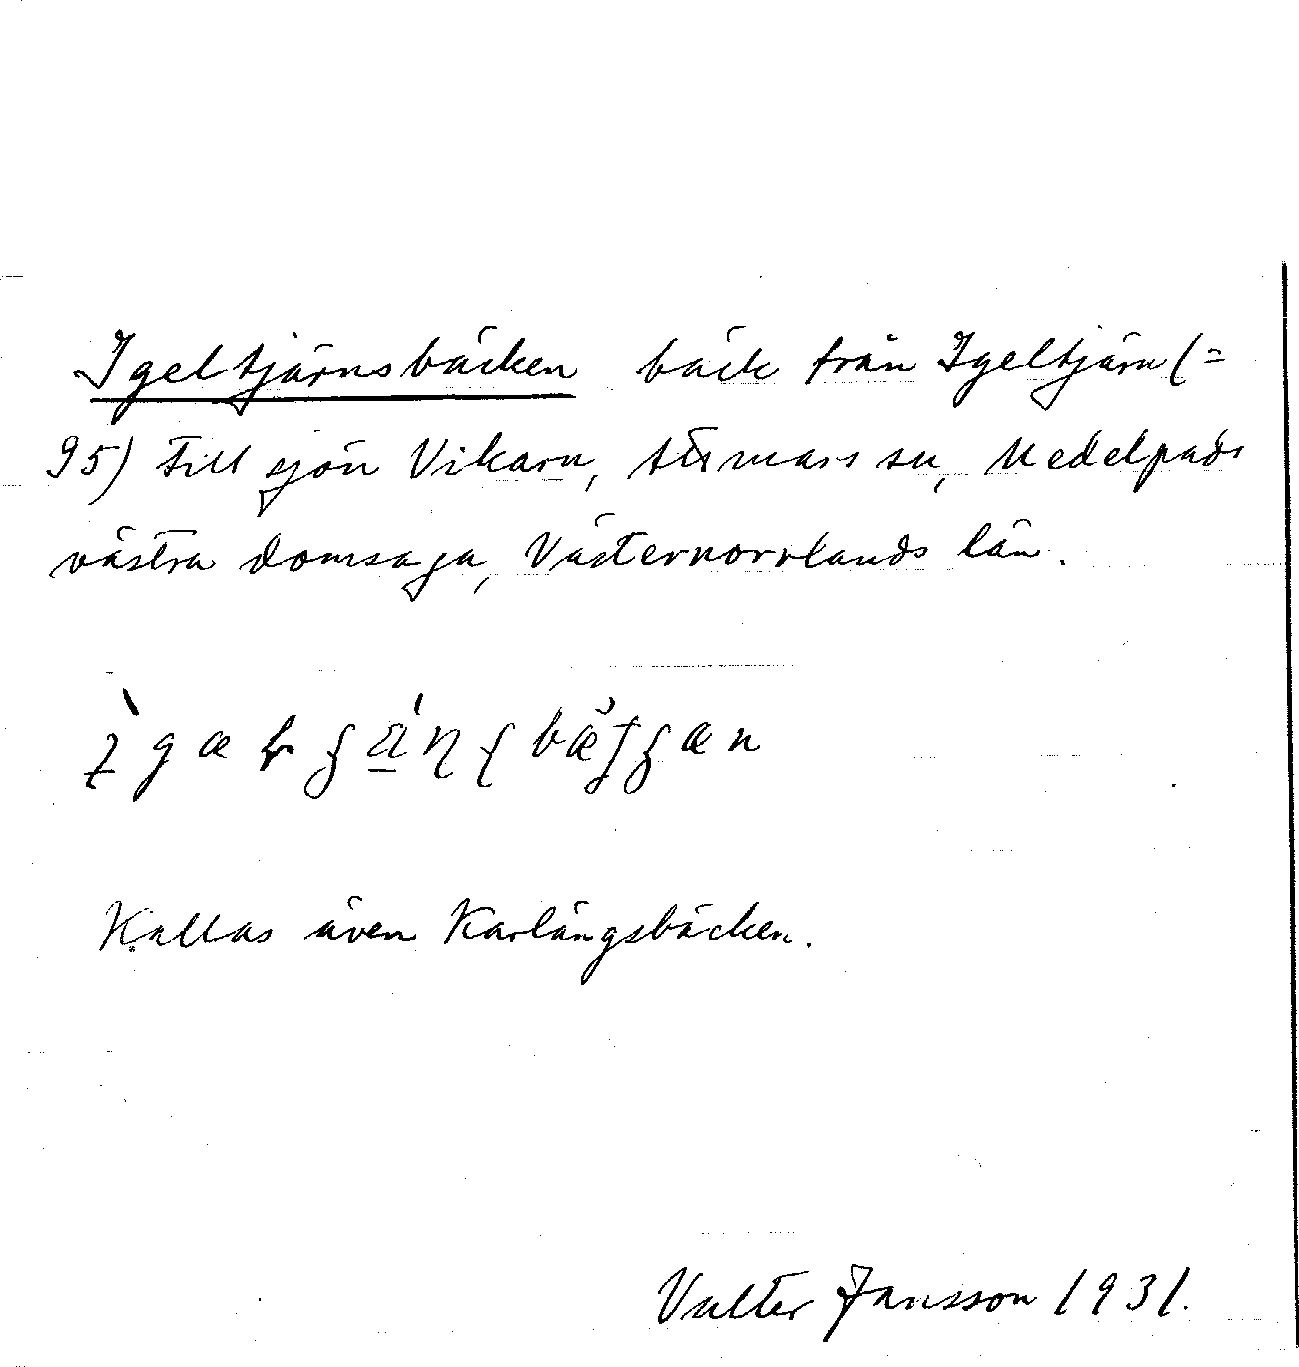 Igeltjärnsbäcken bäck från Igeltjärn (=
95) till sjön Vikarn, Attmars sn, Medelpads
västra domsaga, Västernorrlands län.
Kallas även Karlängsbäcken.
Valter Jansson 1931.